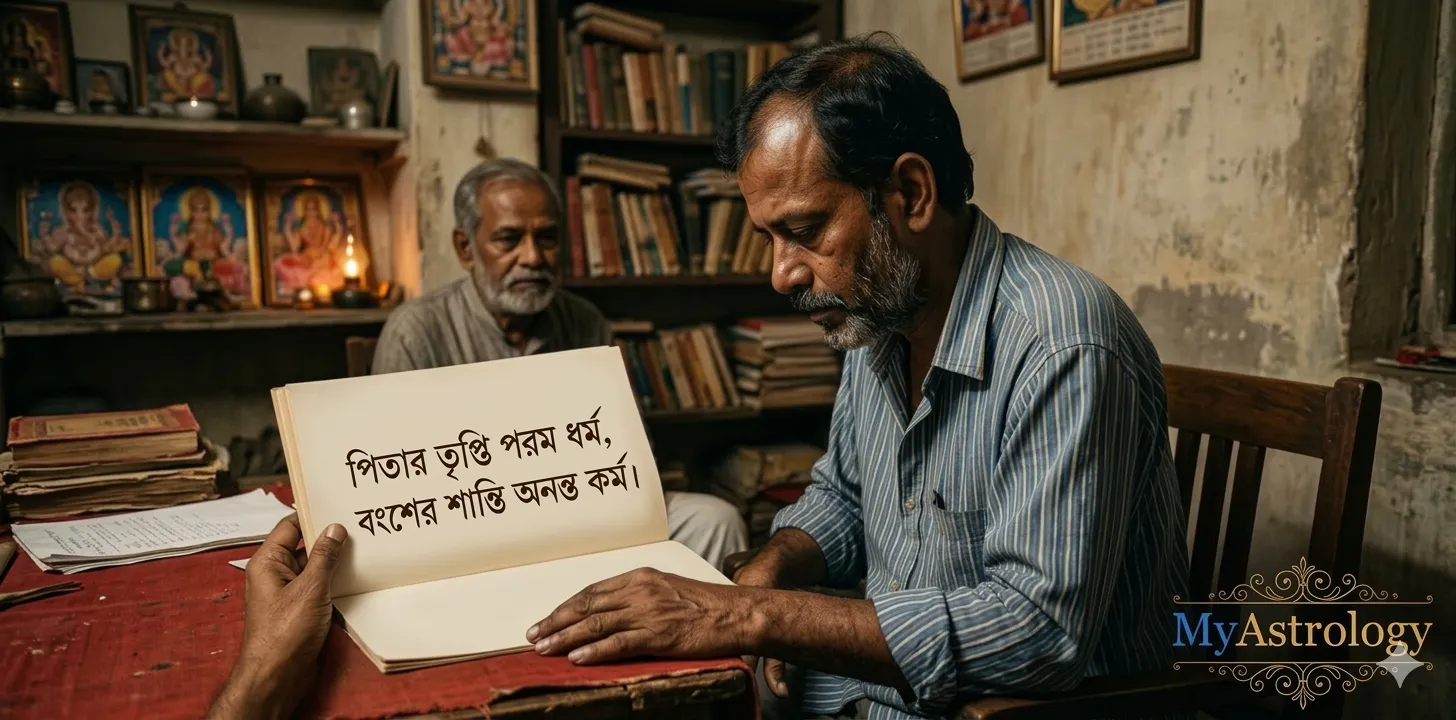 পিতার তৃপ্তি পরম ধর্ম,
বংশের শান্তি অনন্ত কর্ম।
MyAstrology